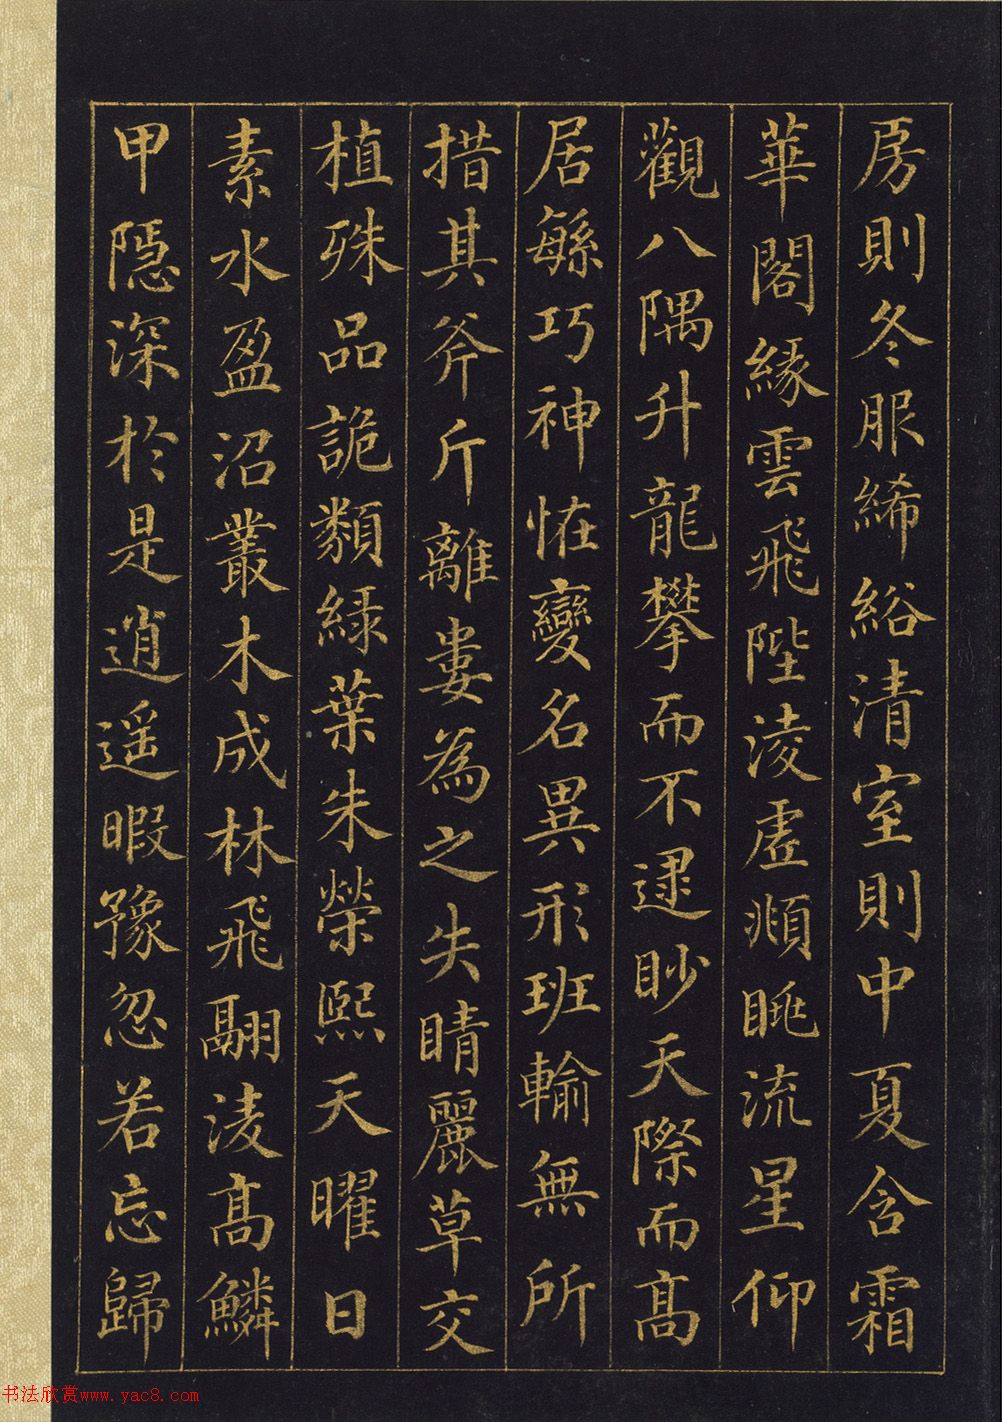 房則冬服絺綌清室則中夏含霜
華閣緣雲飛陛淩虛頫眺流星仰
觀八隅升龍攀而不逮眇天際而高
居緐巧神恠變名異形班輸無所
措其斧斤離婁為之失睛麗草交
植殊品詭類綠葉朱榮熙天曜日
素水盈沼叢木成林飛翮淩高鱗
甲隱深於是逍遥暇豫忽若忘歸
书法欣赏www.yac8.com